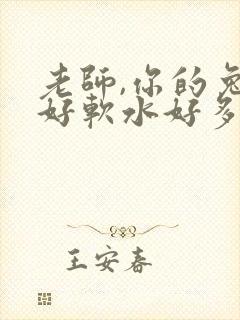 老師,你的兔
好軟水好多
王安春